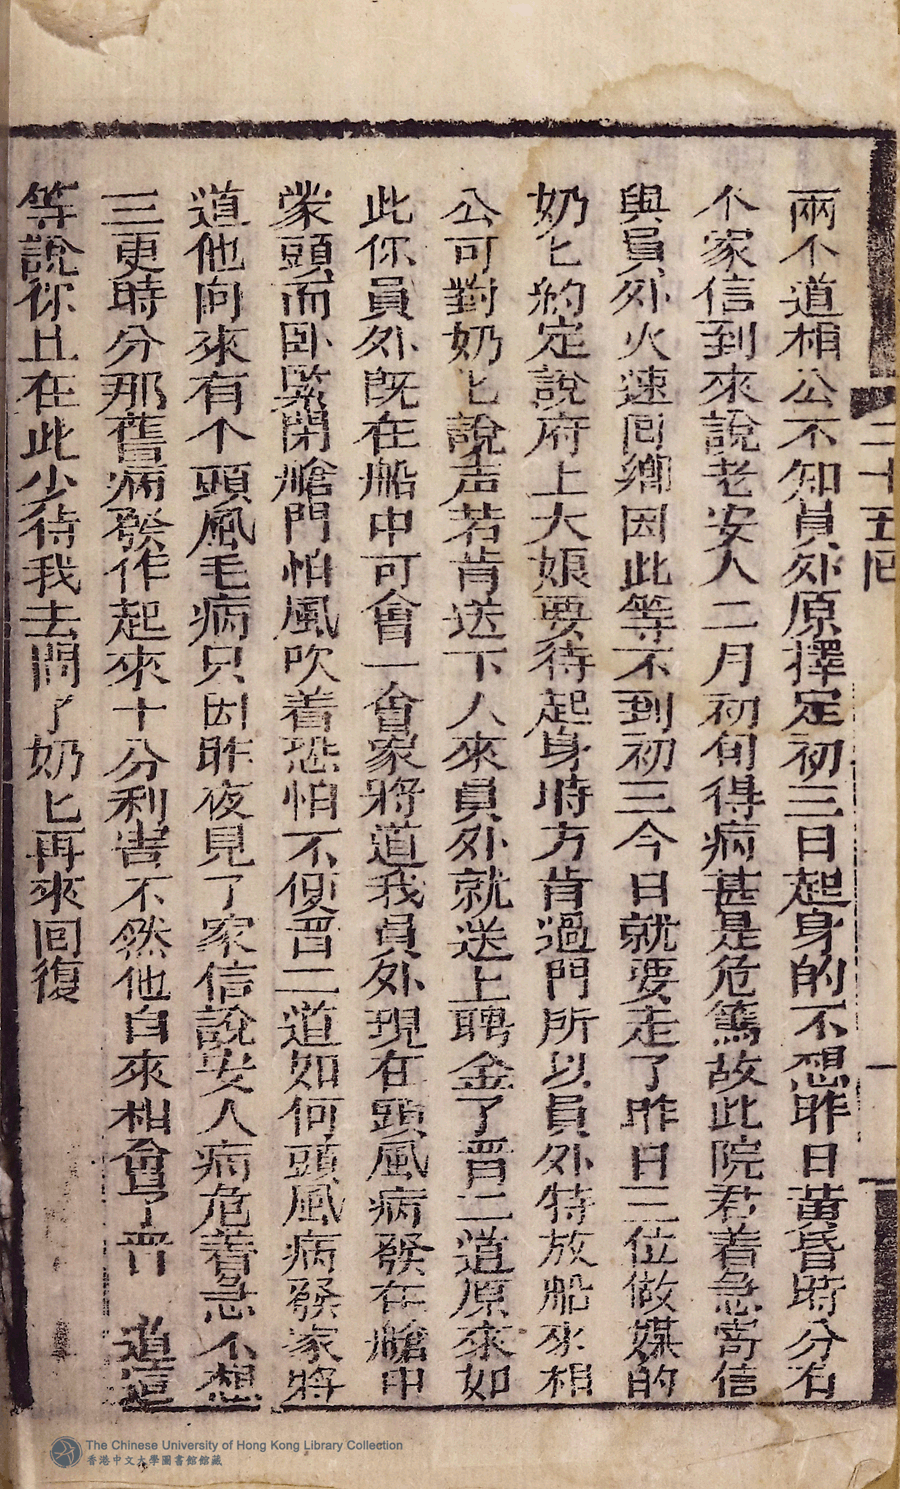 二十五回
一
兩个道相公不知員外原擇定初三日起身的不想昨日黃昏時分有
个家信到來說老安人二月初旬得病甚是危篤故此院君着急寄信
與員外火速回鄉因此等不到初三今日就要走了昨日三位做媒的
奶匕約定說府上大娘要待起身時方肯過門所以員外特放船來相
公可對奶匕說声若肯送下人來員外就送上聘金了晋二道原來如
此你員外既在船中可會一會家將道我員外現在頭風病發在艙中
蒙頭而卧緊閉艙門怕風吹着恐怕不便晋二道如何頭風病發家將
道他向來有个頭風毛病只因昨夜見了家信說安人病危着急不想
三更時分那舊病發作起來十分利害不然他自來相會了晋 道這
等說你且在此少待我去問了奶匕再來回復
The Chinese University of Hong Kong Library Collection
香港中文大學圖書館館藏